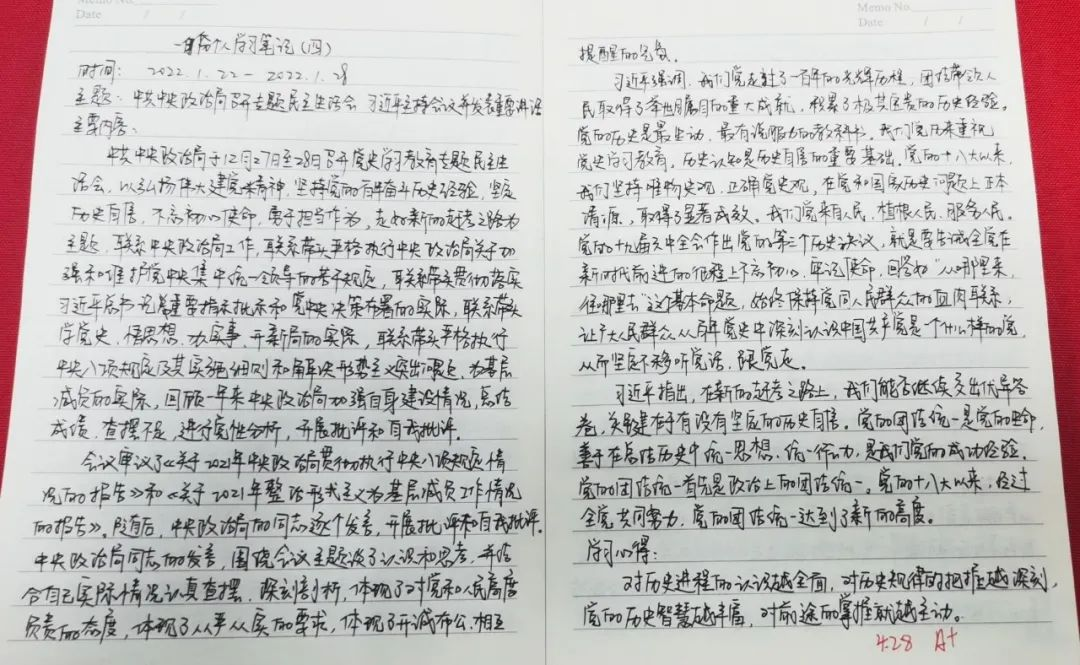 Memo No.
Date / /
一月份个人学习笔记(四)
时间: 2022.1.22-2022.1.28
主题: 中共中央政治局召开专题民主生活会 习近平主持会议并发表重要讲话
主要内容:
中共中央政治局于12月27日至28日召开党史学习教育专题民主生
活会,以弘扬伟大建党精神,坚持党的百年奋斗历史经验,坚定
历史自信,不忘初心使命,勇于担当作为,走好新的赶考之路为
主题,联系中央政治局工作,联系带头严格执行中央政治局关于加
强和维护党中央集中统一领导的若干规定,联系带头贯彻落实
习近平总书记重要指示批示和党中央决策部署的实际,联系带头
学党史、悟思想、办实事、开新局的实际,联系带头严格执行
中央八项规定及其实施细则和解决形式主义突出问题、为基层
减负的实际,回顾一年来中央政治局加强自身建设情况,总结
成绩,查摆不足,进行党性分析,开展批评和自我批评。
会议审议了《关于2021年中央政治局贯彻执行中央八项规定情
况的报告》和《关于2021年整治形式主义为基层减负工作情况
的报告》。随后,中央政治局的同志逐个发言,开展批评和自我批评。
中央政治局同志的发言,围绕会议主题谈了认识和思考,并结
合自己实际情况认真查摆、深刻剖析,体现了对党和人民高度
负责的态度,体现了从严从实的要求,体现了开诚布公、相互
Memo No.
Date / /
提醒的气氛。
习近平强调,我们党走过了一百年的光辉历程,团结带领人
民取得了举世瞩目的重大成就,积累了极其宝贵的历史经验。
党的历史是最生动、最有说服力的教科书。我们党历来重视
党史学习教育,历史认知是历史自信的重要基础。党的十八大以来,
我们坚持唯物史观、正确党史观,在党和国家历史问题上正本
清源,取得了显著成效。我们党来自人民,植根人民,服务人民。
党的十九届六中全会作出党的第三个历史决议,就是要告诫全党在
新时代前进的征程上不忘初心、牢记使命,回答好“从哪里来、
往哪里去”这个基本命题,始终保持党同人民群众的血肉联系,
让广大人民群众从百年党史中深刻认识中国共产党是一个什么样的党,
从而坚定不移听党话、跟党走。
习近平指出,在新的赶考之路上,我们能否继续交出优异答
卷,关键在于有没有坚定的历史自信。党的团结统一是党的生命,
善于在总结历史中统一思想、统一行动,是我们党的成功经验。
党的团结统一首先是政治上的团结统一。党的十八大以来,经过
全党共同努力,党的团结统一达到了新的高度。
学习心得:
对历史进程的认识越全面,对历史规律的把握越深刻,
党的历史智慧越丰富,对前途的掌握就越主动。
428 A+